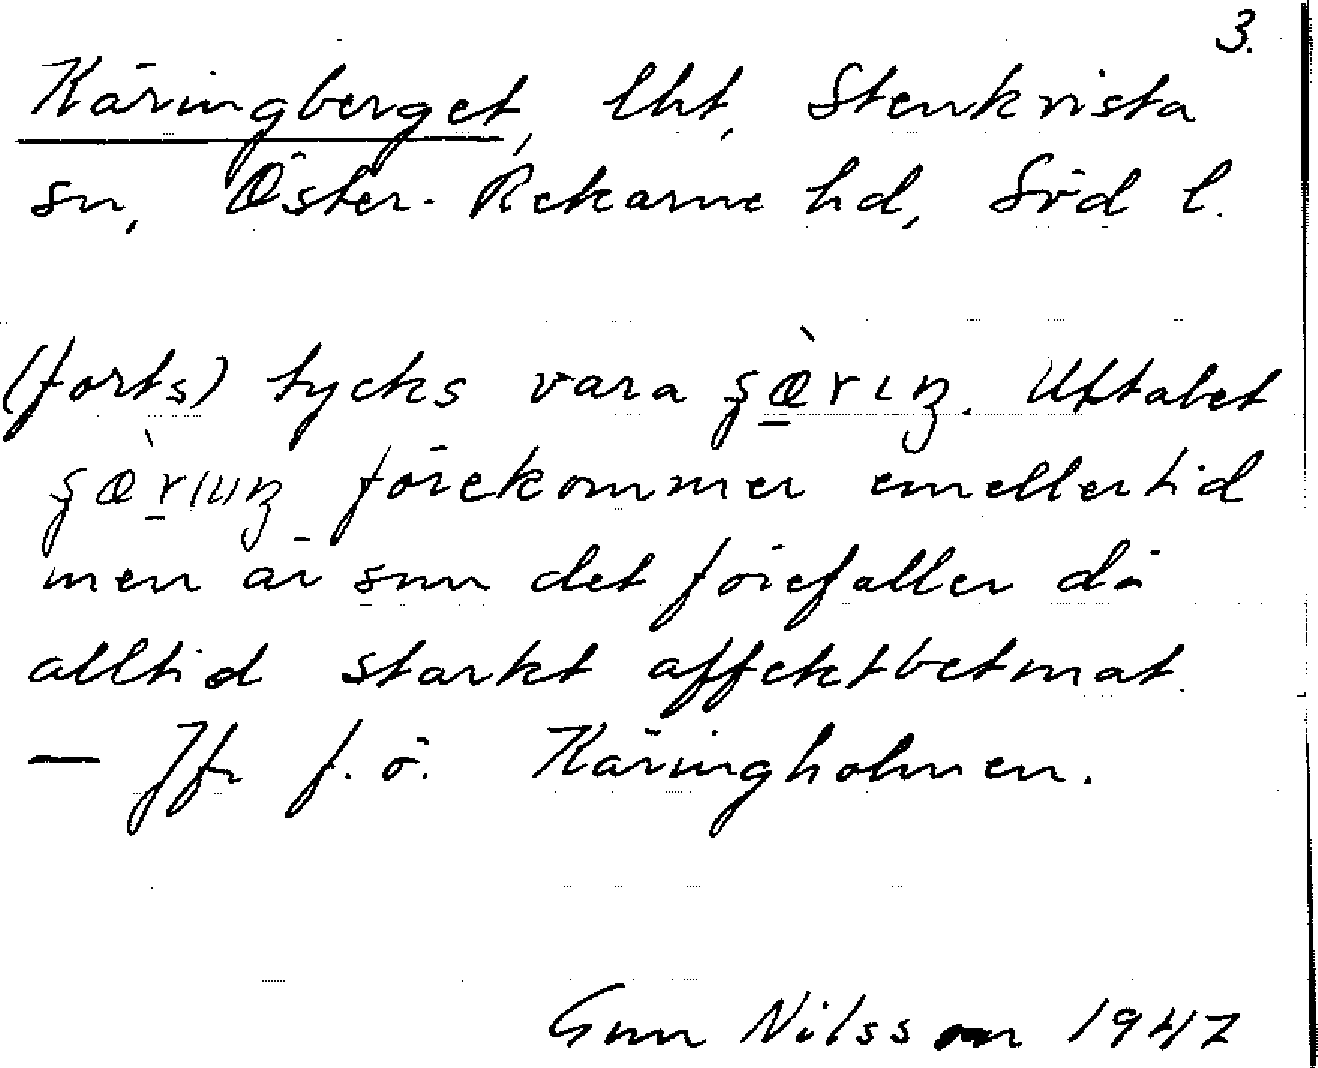 3.
Käringberget, lht, Stenkvista
sn, Öster-Rekarne hd, Söd l.
(forts) tycks vara Uttalet
förekommer emellertid
men är som det förefaller då
alltid starkt affektbetonat.
— Jfr f. ö. Käringholmen.
Gun Nilsson 1947